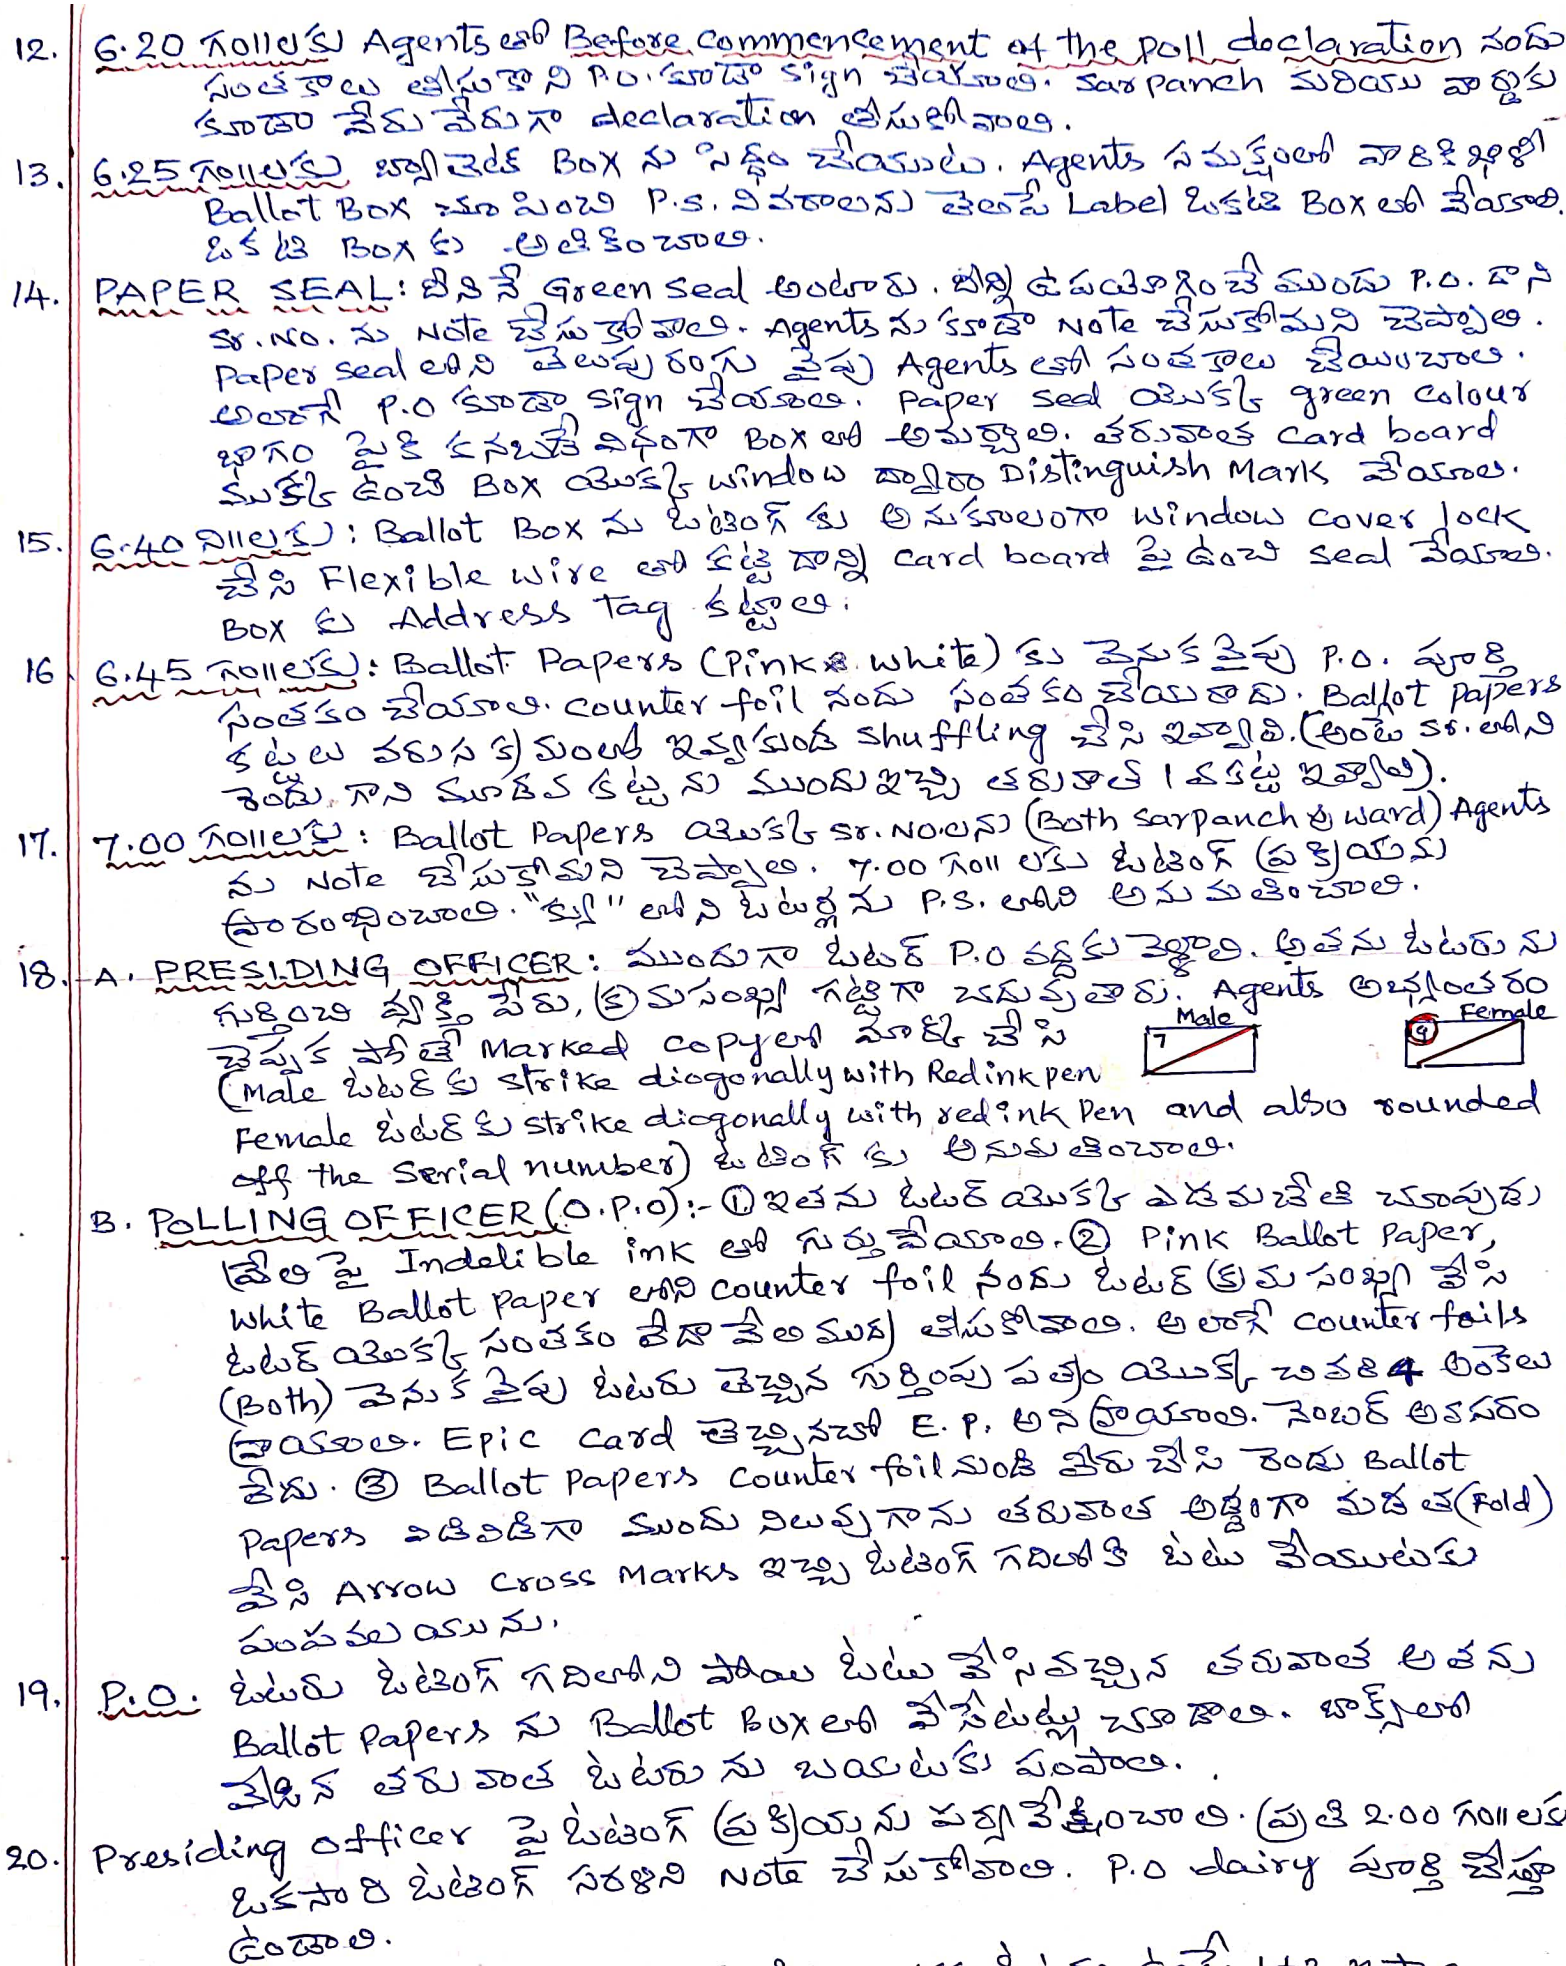 12. 6.20 గంటలకు Agents తో Before commencement of the poll declaration నందు
సంతకాలు తీసుకొని P.O. కూడా sign చేయాలి. sarpanch మరియు వార్డుకు
కూడా వేరు వేరుగా declaration తీసుకోవాలి.
13. 6.25 గం॥లకు బ్యాలెట్ Box ను సిద్ధం చేయుట. Agents సమక్షంలో వారికి ఖాళీ
Ballot Box చూపించి P.S. వివరాలను తెలిపే Label ఒకటి Box లో వేయాలి.
ఒకటి Box కు అతికించాలి.
14. PAPER SEAL: దీనినే Green seal అంటారు. దీన్ని ఉపయోగించే ముందు P.O. దాని
Sr. No. ను Note చేసుకోవాలి. Agents ను కూడా Note చేసుకోమని చెప్పాలి.
Paper seal లోని తెలుపు రంగు వైపు Agents తో సంతకాలు చేయించాలి.
అలాగే P.O కూడా sign చేయాలి. Paper seal యొక్క green colour
భాగం పైకి కనబడే విధంగా Box లో అమర్చాలి. తరువాత card board
ముక్క ఉంచి Box యొక్క window ద్వారా Distinguish Mark వేయాలి.
15. 6.40 ని॥లకు : Ballot Box ను ఓటింగ్ కు అనుకూలంగా window cover lock
చేసి Flexible wire తో కట్టి దాన్ని card board పై ఉంచి seal వేయాలి.
Box కు Address Tag కట్టాలి.
16 6.45 గం॥లకు : Ballot Papers (Pink & white) కు వెనుక వైపు P.O. పూర్తి
సంతకం చేయాలి. counter foil నందు సంతకం చేయరాదు. Ballot papers
కట్టలు వరుస క్రమంలో ఇవ్వకుండ shuffling చేసి ఇవ్వాలి. (అంటే Sr. లోని
రెండు గాని మూడవ కట్టను ముందు ఇచ్చి తరువాత 1 వ కట్ట ఇవ్వాలి).
17. 7.00 గం॥లకు : Ballot Papers యొక్క Sr. No.లను (Both sarpanch & ward) Agents
ను Note చేసుకోమని చెప్పాలి. 7.00 గం॥ లకు ఓటింగ్ ప్రక్రియను
ప్రారంభించాలి. "క్యు" లోని ఓటర్లను P.S. లోకి అనుమతించాలి.
18. A. PRESIDING OFFICER : ముందుగా ఓటర్ P.O వద్దకు వెళ్ళాలి. అతను ఓటరును
గుర్తించి వ్యక్తి పేరు, క్రమసంఖ్య గట్టిగా చదువుతారు. Agents అభ్యంతరం
చెప్పక పోతే Marked copy లో మార్క్ చేసి
Male 7
Female 9
(Male ఓటర్ కు strike diogonally with Red ink pen
Female ఓటర్ కు strike diogonally with red ink Pen and also rounded
off the serial number) ఓటింగ్ కు అనుమతించాలి.
B. POLLING OFFICER (O.P.O):- ① ఇతను ఓటర్ యొక్క ఎడమచేతి చూపుడు
వ్రేలి పై Indelible ink తో గుర్తు వేయాలి. ② Pink Ballot Paper,
white Ballot paper లోని counter foil నందు ఓటర్ క్రమ సంఖ్య వేసి
ఓటర్ యొక్క సంతకం లేదా వేలి ముద్ర తీసుకోవాలి. అలాగే counter foils
(Both) వెనుక వైపు ఓటరు తెచ్చిన గుర్తింపు పత్రం యొక్క చివరి 4 అంకెలు
వ్రాయాలి. Epic card తెచ్చినచో E.P. అని వ్రాయాలి. నెంబర్ అవసరం
లేదు. ③ Ballot Papers counter foil నుండి వేరు చేసి రెండు Ballot
Papers విడివిడిగా ముందు నిలువుగాను తరువాత అడ్డంగా మడత (Fold)
వేసి Arrow cross Marks ఇచ్చి ఓటింగ్ గదిలోకి ఓటు వేయుటకు
పంపవలయును.
19. P.O. ఓటరు ఓటింగ్ గదిలోని పోయి ఓటు వేసి వచ్చిన తరువాత అతను
Ballot Papers ను Ballot Box లో వేసేటట్లు చూడాలి. బాక్స్ లో
వేసిన తరువాత ఓటరు ను బయటకు పంపాలి.
20. Presiding officer పై ఓటింగ్ ప్రక్రియను పర్యవేక్షించాలి. ప్రతి 2.00 గం॥లకు
ఒకసారి ఓటింగ్ సరళిని Note చేసుకోవాలి. P.O dairy పూర్తి చేస్తూ
ఉండాలి.